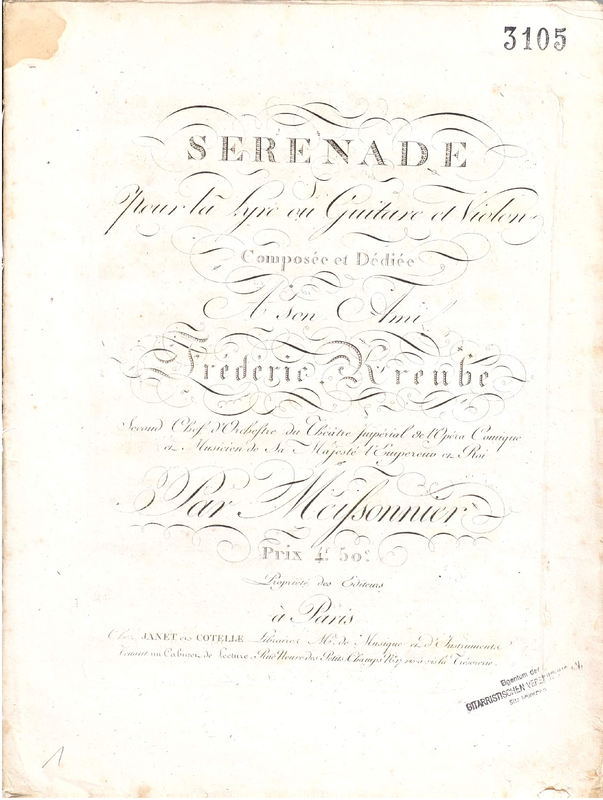 3105
SERENADE
Pour la Lyre ou Guitare et Violon
Composée et Dédiée
A son Ami
Frédéric Kreubé
Second Chef d'Orchestre du Théâtre Impérial de l'Opéra Comique
et Musicien de Sa Majesté l'Empereur et Roi
Par Meissonnier
Prix 4f. 50c.
Propriété des Editeurs
à Paris
Chez JANET et COTELLE Libraires, Mds. de Musique et d'Instruments,
tenant un Cabinet de Lecture, Rue Neuve des Petits Champs No. 17 vis à vis la Trésorerie.
Eigentum der
GITARRISTISCHEN
1